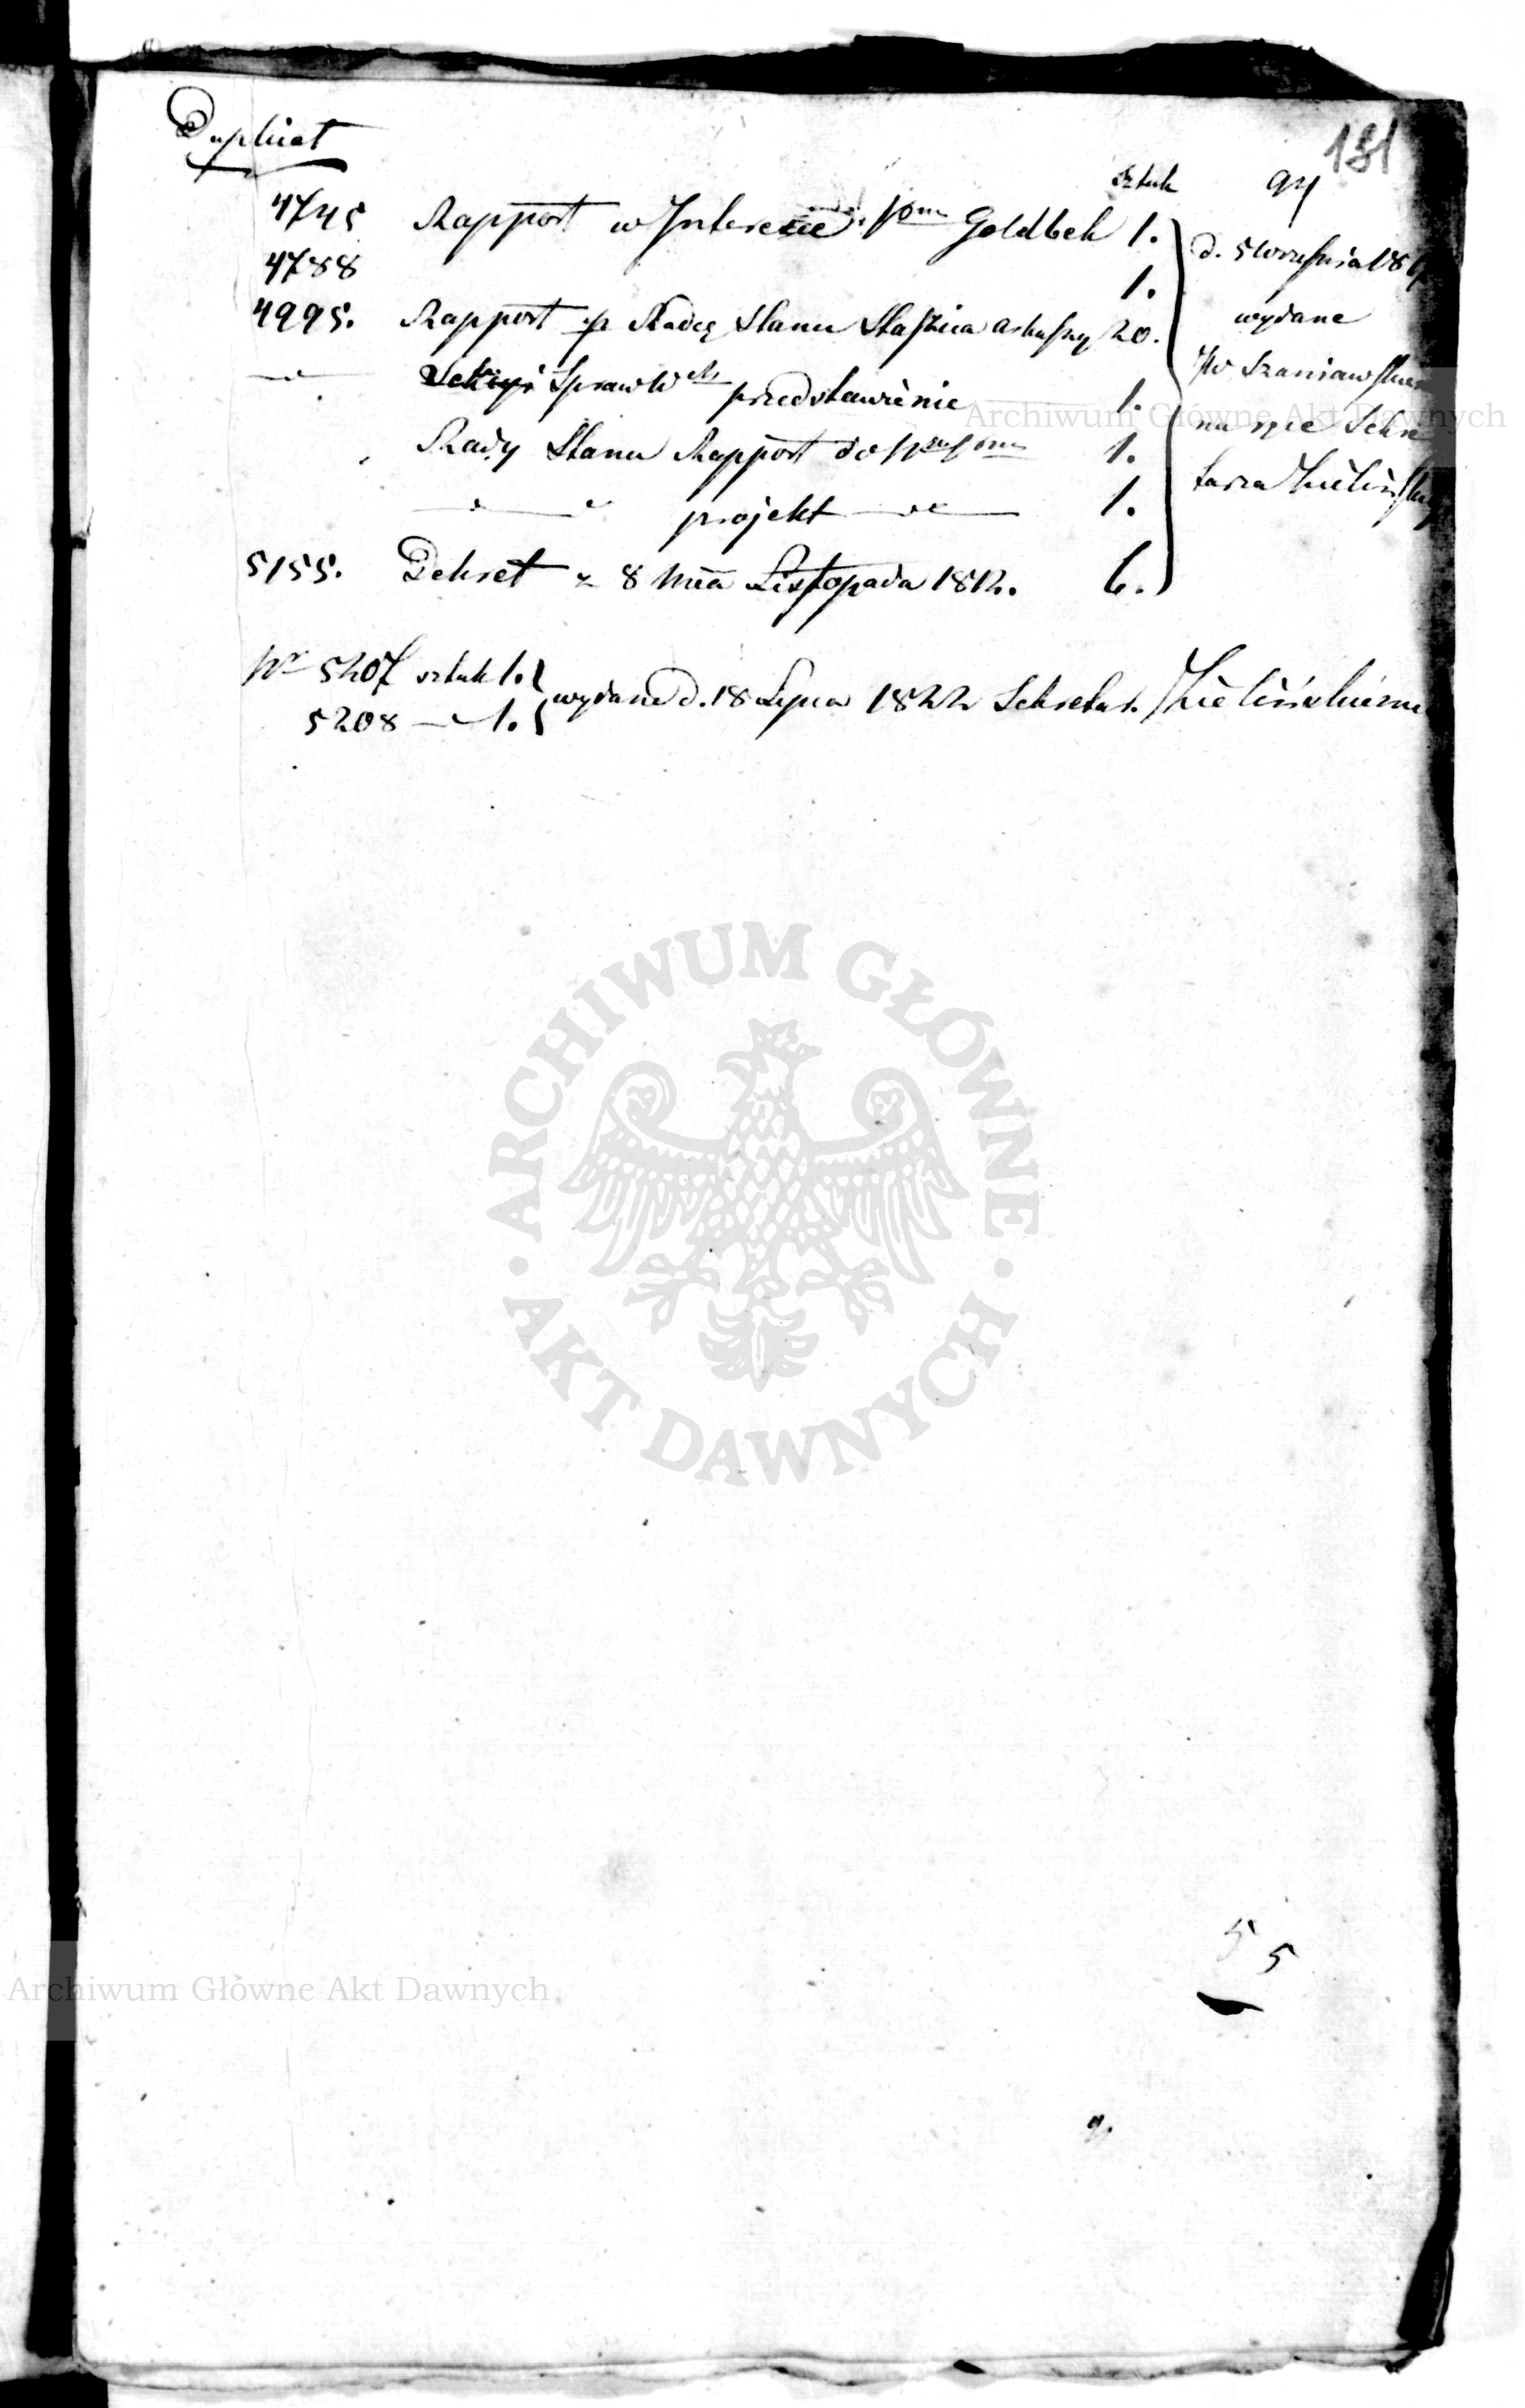 Duplicat
181
sztuk
94
4745 Rapport w Interesie Goldbek 1.
4788 1.
4995. Rapport p Radcę Stanu Staszica arkuszy 20.
Sekcyi Sprawied przedstawienie 1.
Rady Stanu Rapport do 1.
projekt 1.
5155. Dekret z 8 Listopada 1812. 6.
d. 5 Września
wydane
JW Szaniawskie
na ręce Sekre
tarza
Nr 5207 sztuk 1.
5208 — 1.
wydane d. 18 Lipca 1822 Sekretar.
55
Archiwum Główne Akt Dawnych
ARCHIWUM GŁÓWNE
AKT DAWNYCH
Archiwum Główne Akt Dawnych